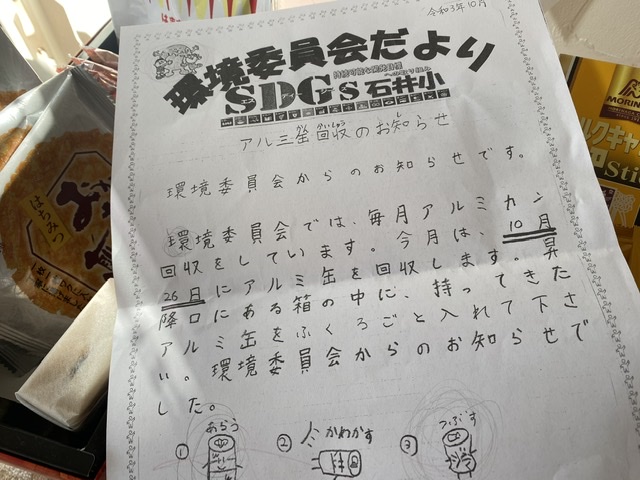 令和3年10月
環境委員会だより
持続可能な開発目標
SDGs 石井小
アルミ缶回収のお知らせ
環境委員会からのお知らせです。
環境委員会では、毎月アルミカン
回収をしています。今月は、10月
26日にアルミ缶を回収します。昇
降口にある箱の中に、持ってきた
アルミ缶をふくろごと入れて下さ
い。環境委員会からのお知らせで
した。
① あらう
② かわかす
③ つぶす
はちみつ
MORIN
Stic